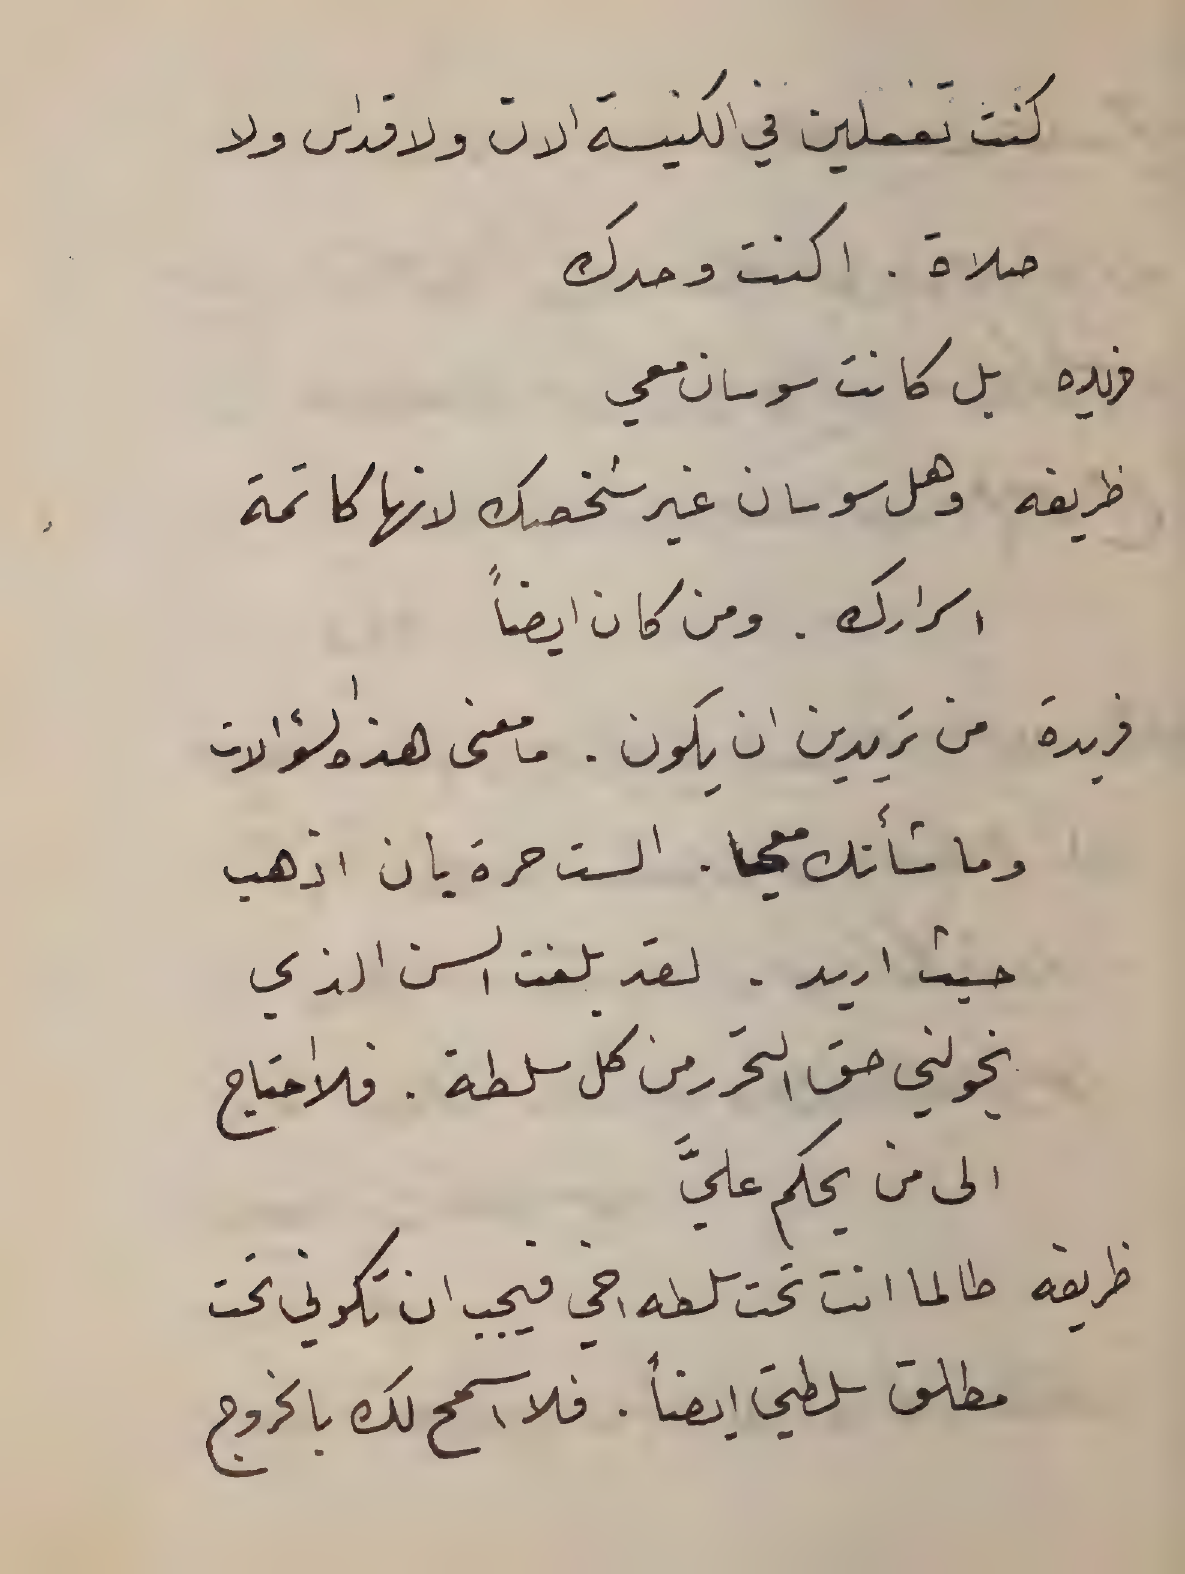 كنت تفعلين في الكنيسة الان ولا قداس ولا
صلاة . اكنت وحدك
فريده بل كانت سوسان معي
ظريفه وهل سوسان غير شخصك لانها كاتمة
اسرارك . ومن كان ايضاً
فريدة من تريدين ان يكون . ما معنى هذه السؤالات
وما شأنك معي . الست حرة بان اذهب
حيث اريد . لقد بلغت السن الذي
يخولني حق التحرر من كل سلطة . فلا احتاج
الى من يحكم عليَّ
ظريفه طالما انت تحت سلطه اخي فيجب ان تكوني تحت
مطلق سلطتي ايضاً . فلا اسمح لك بالخروج